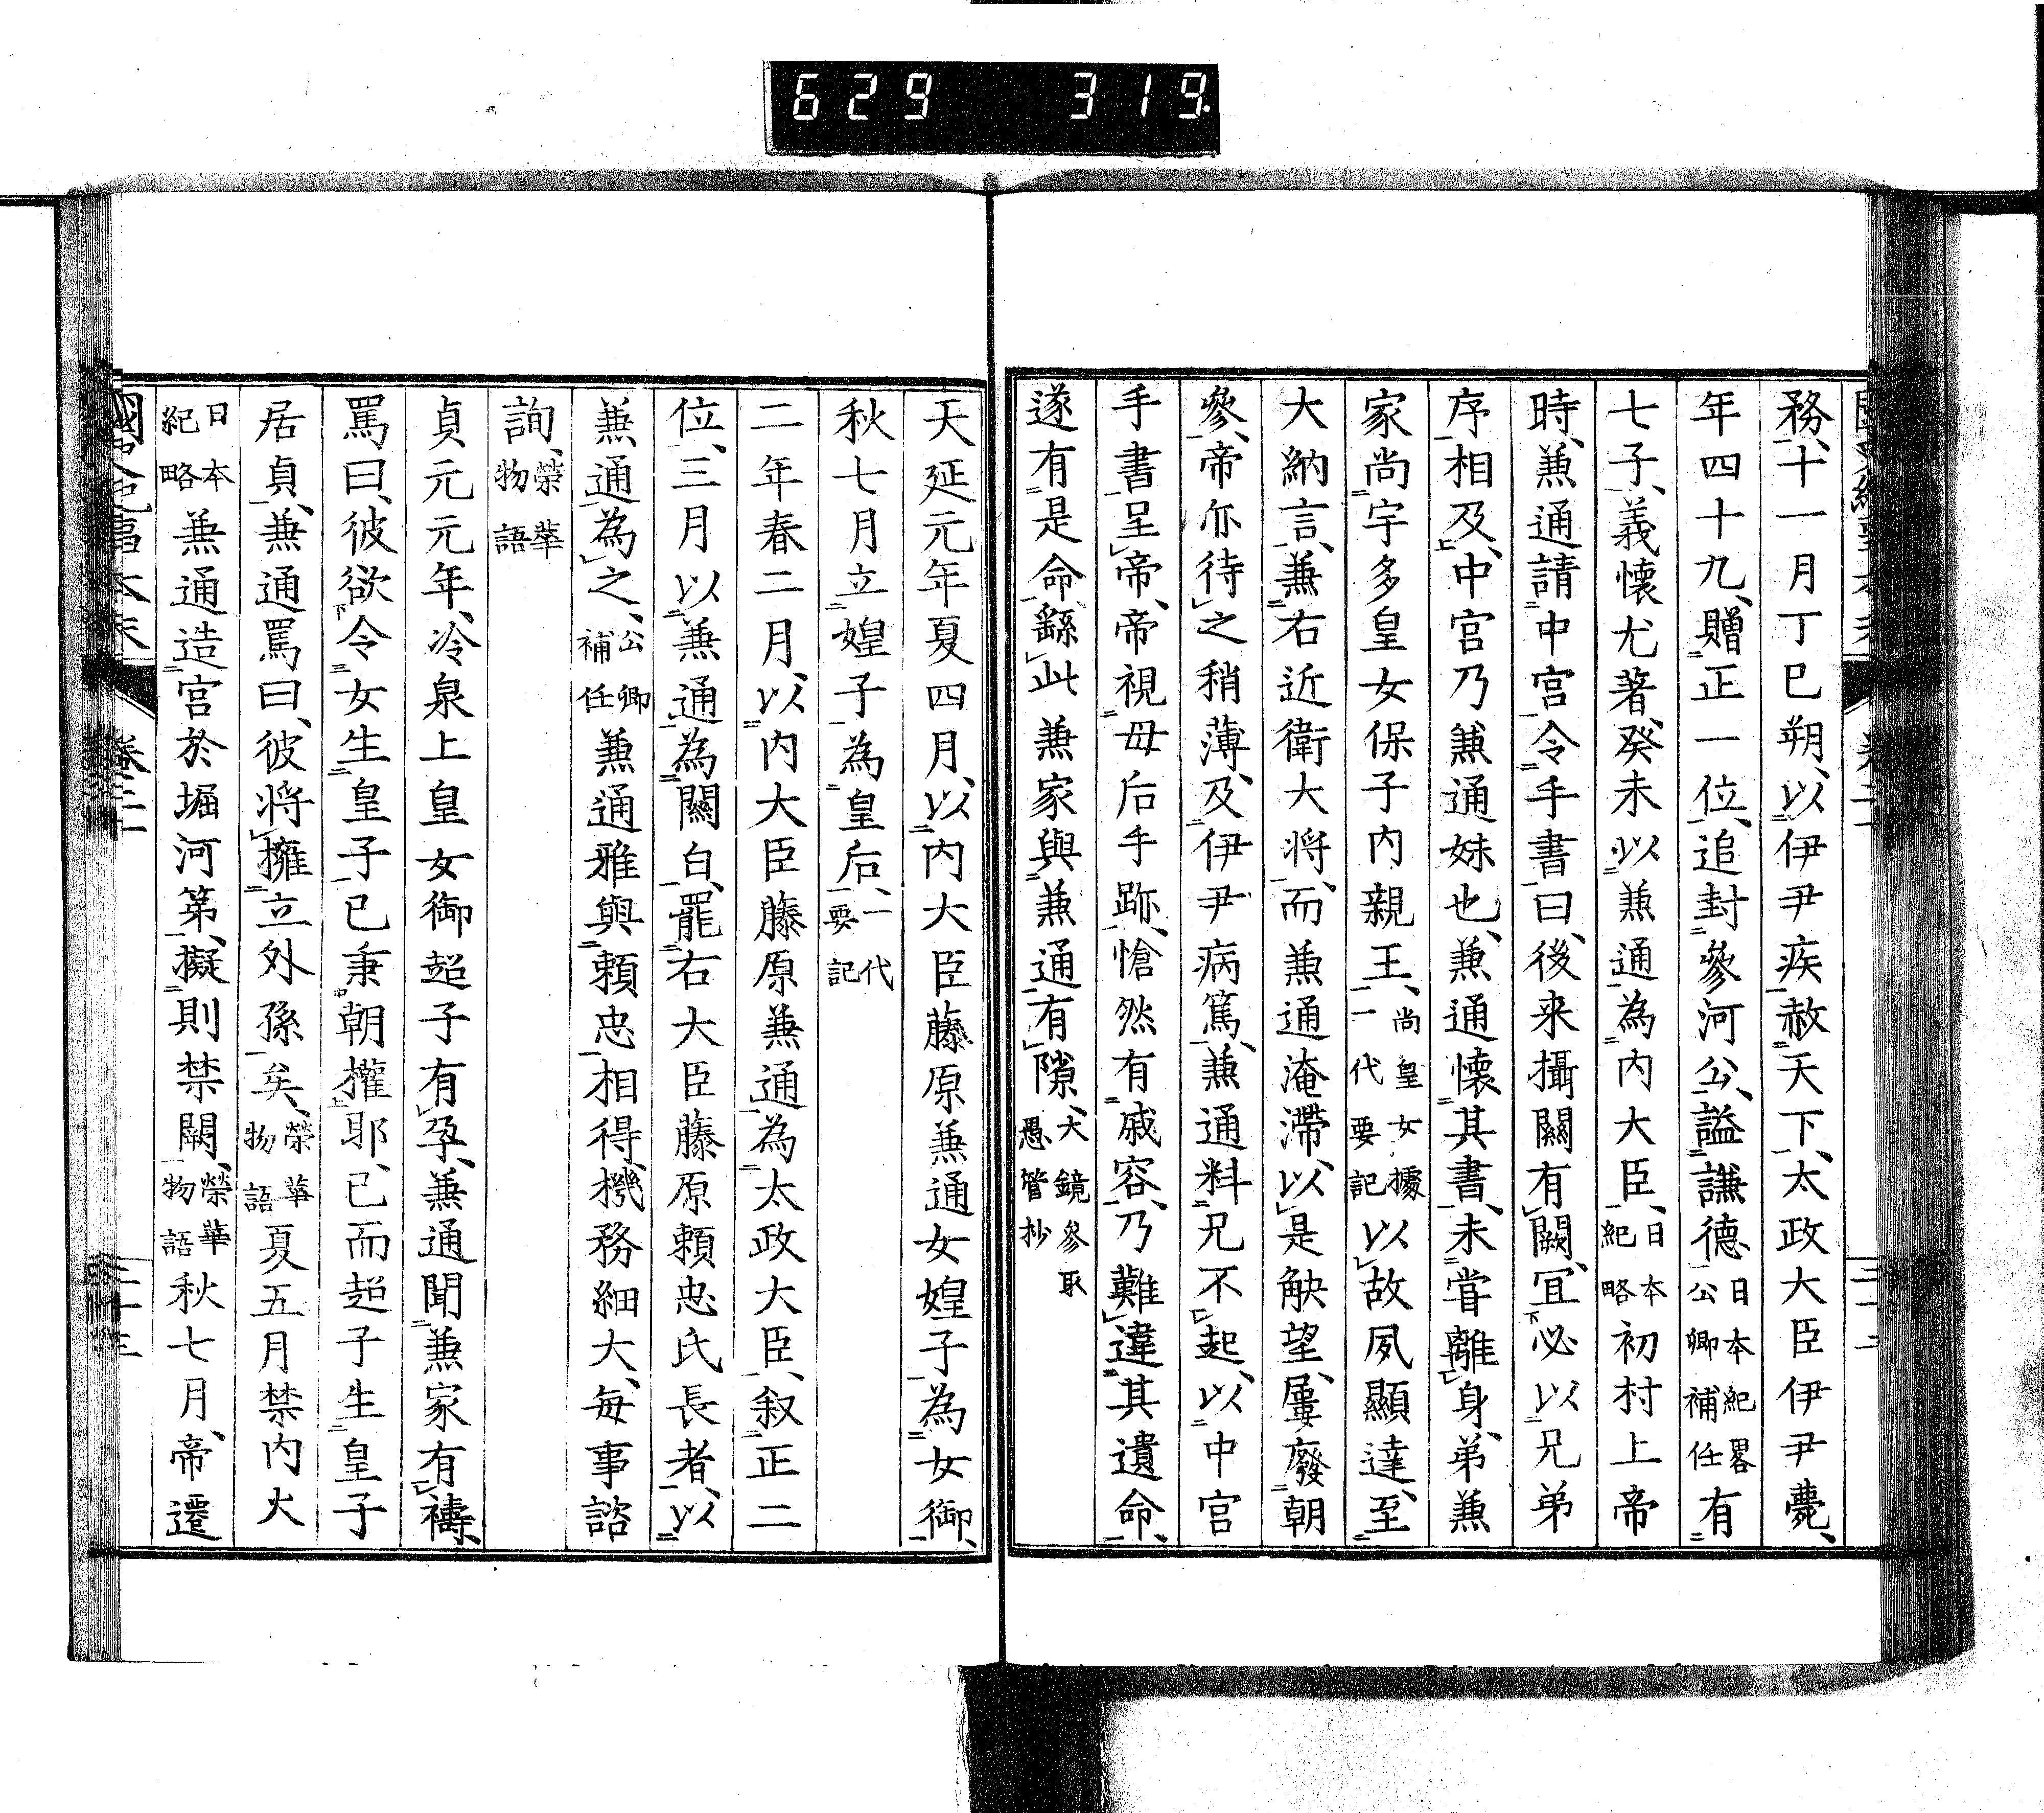 629 319
務、十一月丁巳朔、以伊尹疾、赦天下、太政大臣伊尹薨、
年四十九、贈正一位、追封參河公、謚謙德、日本紀畧公卿補任有
七子、義懷尤著、癸未以兼通為内大臣、日本紀略初村上帝
時、兼通請中宮、令手書曰、後来攝關有闕、宜必以兄弟
序相及、中宮乃兼通妹也、兼通懷其書、未甞離身、弟兼
家尚宇多皇女保子内親王、尚皇女據一代要記以故夙顯達、至
大納言、兼右近衛大将、而兼通淹滯、以是觖望、屢廢朝
參、帝亦待之稍薄、及伊尹病篤、兼通料兄不起、以中宮
手書呈帝、帝視母后手跡、愴然有戚容、乃難違其遺命、
遂有是命、繇此兼家與兼通有隙、大鏡參取愚管抄
天延元年夏四月、以内大臣藤原兼通女媓子為女御、
秋七月立媓子為皇后、一代要記
二年春二月、以内大臣藤原兼通為太政大臣、叙正二
位、三月以兼通為關白、罷右大臣藤原頼忠氏長者、以
兼通為之、公卿補任兼通雅與頼忠相得、機務細大、毎事諮
詢、榮華物語
貞元元年、冷泉上皇女御超子有孕、兼通聞兼家有禱、
罵曰、彼欲令女生皇子已秉朝權耶、已而超子生皇子
居貞、兼通罵曰、彼将擁立外孫矣、榮華物語夏五月禁内火
日本紀略兼通造宮於堀河第、擬則禁闕、榮華物語秋七月、帝遷